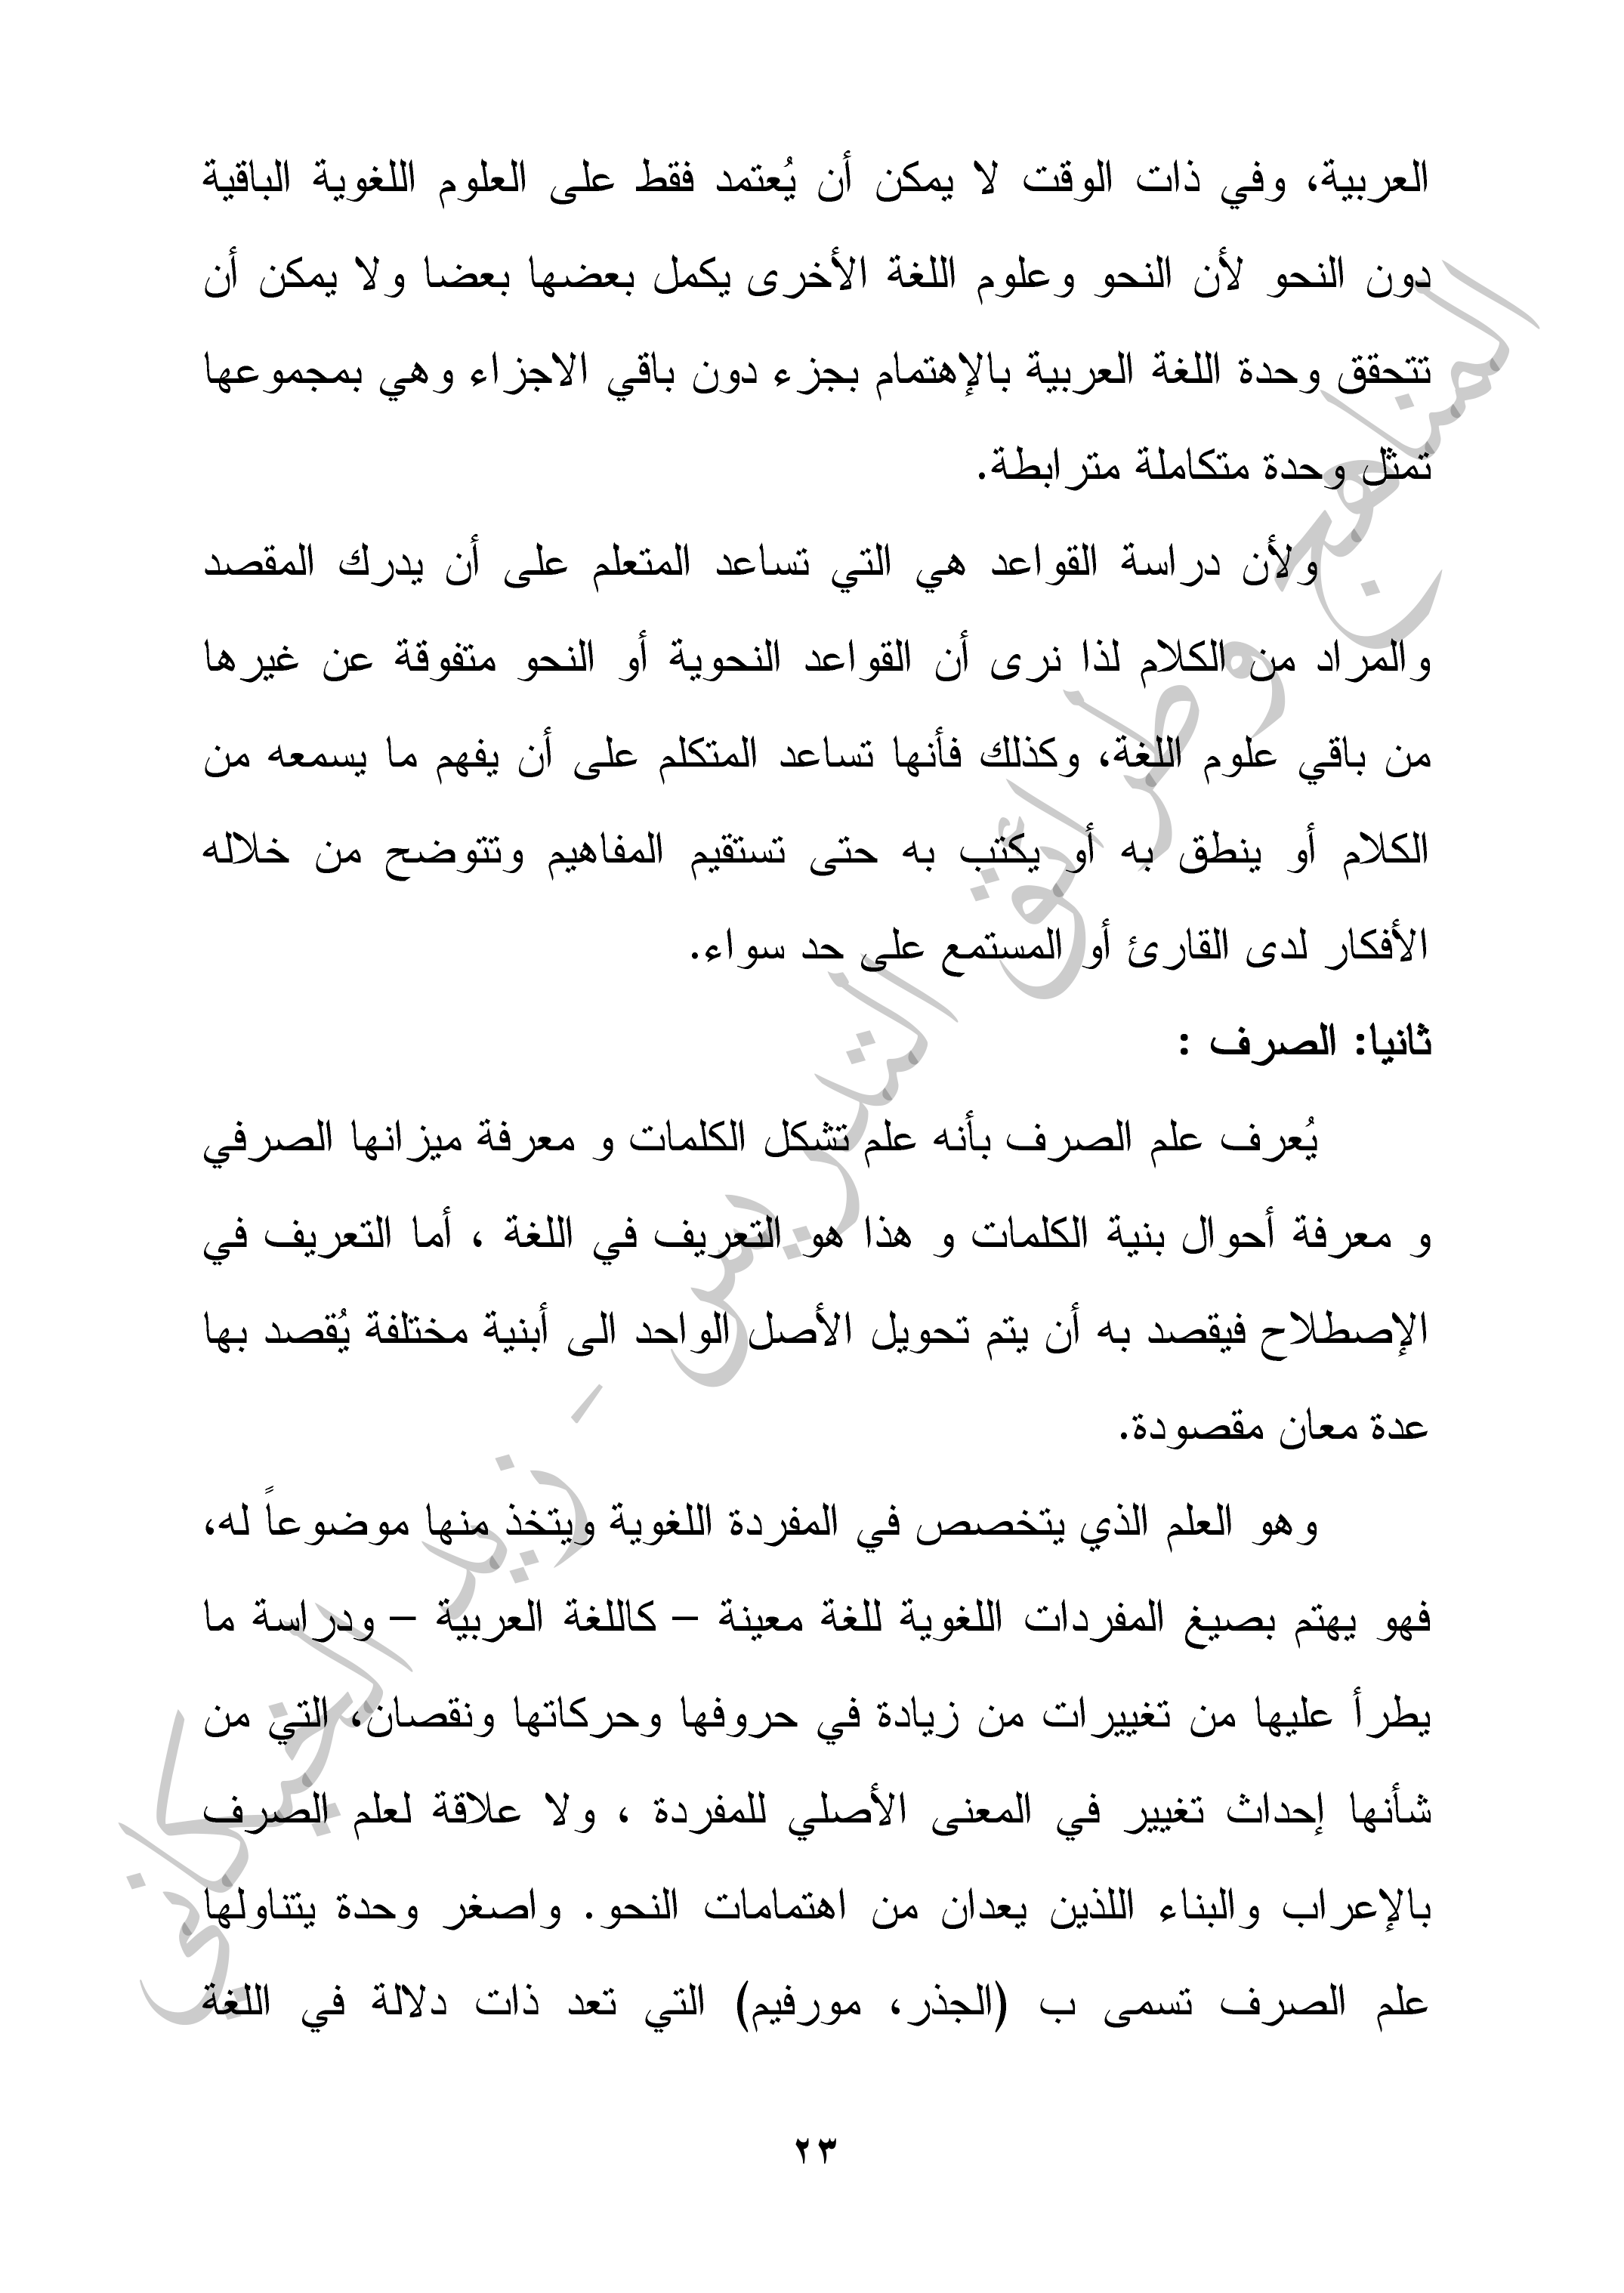 العربية، وفي ذات الوقت لا يمكن أن يُعتمد فقط على العلوم اللغوية الباقية
دون النحو لأن النحو وعلوم اللغة الأخرى يكمل بعضها بعضا ولا يمكن أن
تتحقق وحدة اللغة العربية بالإهتمام بجزء دون باقي الاجزاء وهي بمجموعها
تمثل وحدة متكاملة مترابطة.
ولأن دراسة القواعد هي التي تساعد المتعلم على أن يدرك المقصد
والمراد من الكلام لذا نرى أن القواعد النحوية أو النحو متفوقة عن غيرها
من باقي علوم اللغة، وكذلك فأنها تساعد المتكلم على أن يفهم ما يسمعه من
الكلام أو ينطق به أو يكتب به حتى تستقيم المفاهيم وتتوضح من خلاله
الأفكار لدى القارئ أو المستمع على حد سواء.
ثانيا: الصرف :
يُعرف علم الصرف بأنه علم تشكل الكلمات و معرفة ميزانها الصرفي
و معرفة أحوال بنية الكلمات و هذا هو التعريف في اللغة ، أما التعريف في
الإصطلاح فيقصد به أن يتم تحويل الأصل الواحد الى أبنية مختلفة يُقصد بها
عدة معان مقصودة.
وهو العلم الذي يتخصص في المفردة اللغوية ويتخذ منها موضوعاً له،
فهو يهتم بصيغ المفردات اللغوية للغة معينة – كاللغة العربية – ودراسة ما
يطرأ عليها من تغييرات من زيادة في حروفها وحركاتها ونقصان، التي من
شأنها إحداث تغيير في المعنى الأصلي للمفردة ، ولا علاقة لعلم الصرف
بالإعراب والبناء اللذين يعدان من اهتمامات النحو. واصغر وحدة يتناولها
علم الصرف تسمى ب (الجذر، مورفيم) التي تعد ذات دلالة في اللغة
٢٣
المناهج وطرائق التدريس - زيد الخيكاني